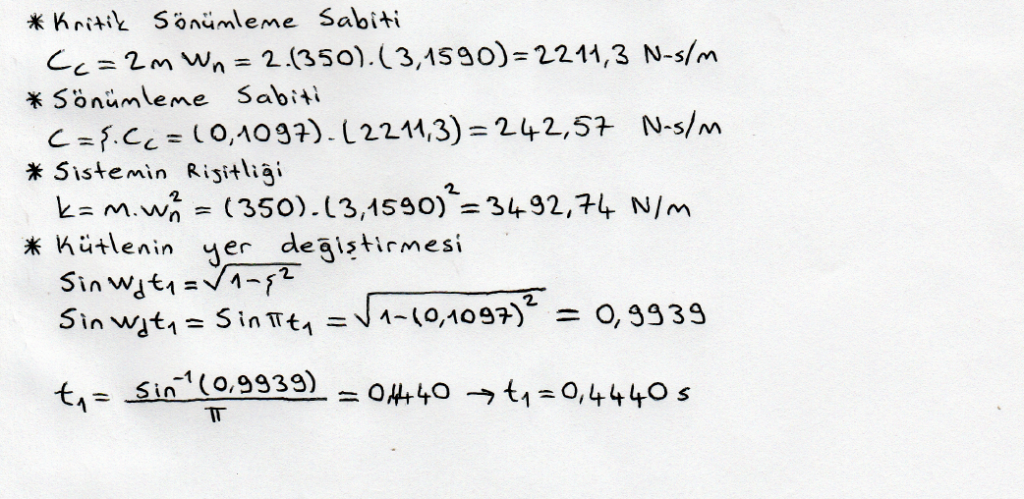 * Kritik Sönümleme Sabiti
Cc = 2m Wn = 2.(350).(3,1590) = 2211,3 N-s/m
* Sönümleme Sabiti
C = ξ.Cc = (0,1097).(2211,3) = 242,57 N-s/m
* Sistemin Rijitliği
k = m.wn² = (350).(3,1590)² = 3492,74 N/m
* Kütlenin yer değiştirmesi
Sin wdt1 = √1-ξ²
Sin wdt1 = Sin πt1 = √1-(0,1097)² = 0,9939
t1 = Sin⁻¹(0,9939) / π = 0,4440 → t1 = 0,4440 s